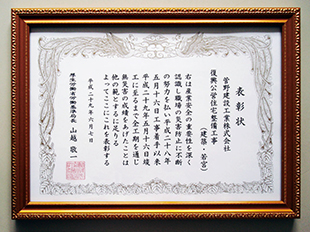 表彰状
菅野建設工業株式会社
復興公営住宅整備工事
(建築・若宮)
右は産業安全の重要性を深く
認識し職場の災害防止に不断
の努力を払い平成二十八年
五月十六日工事着手以来
平成二十九年五月十六日竣
工に至るまで全工期を通じ
無災害の成績をあげたことは
他の範とするに足りる
よってここにこれを表彰する
平成二十九年六月七日
厚生労働省労働基準局長
山越敬一